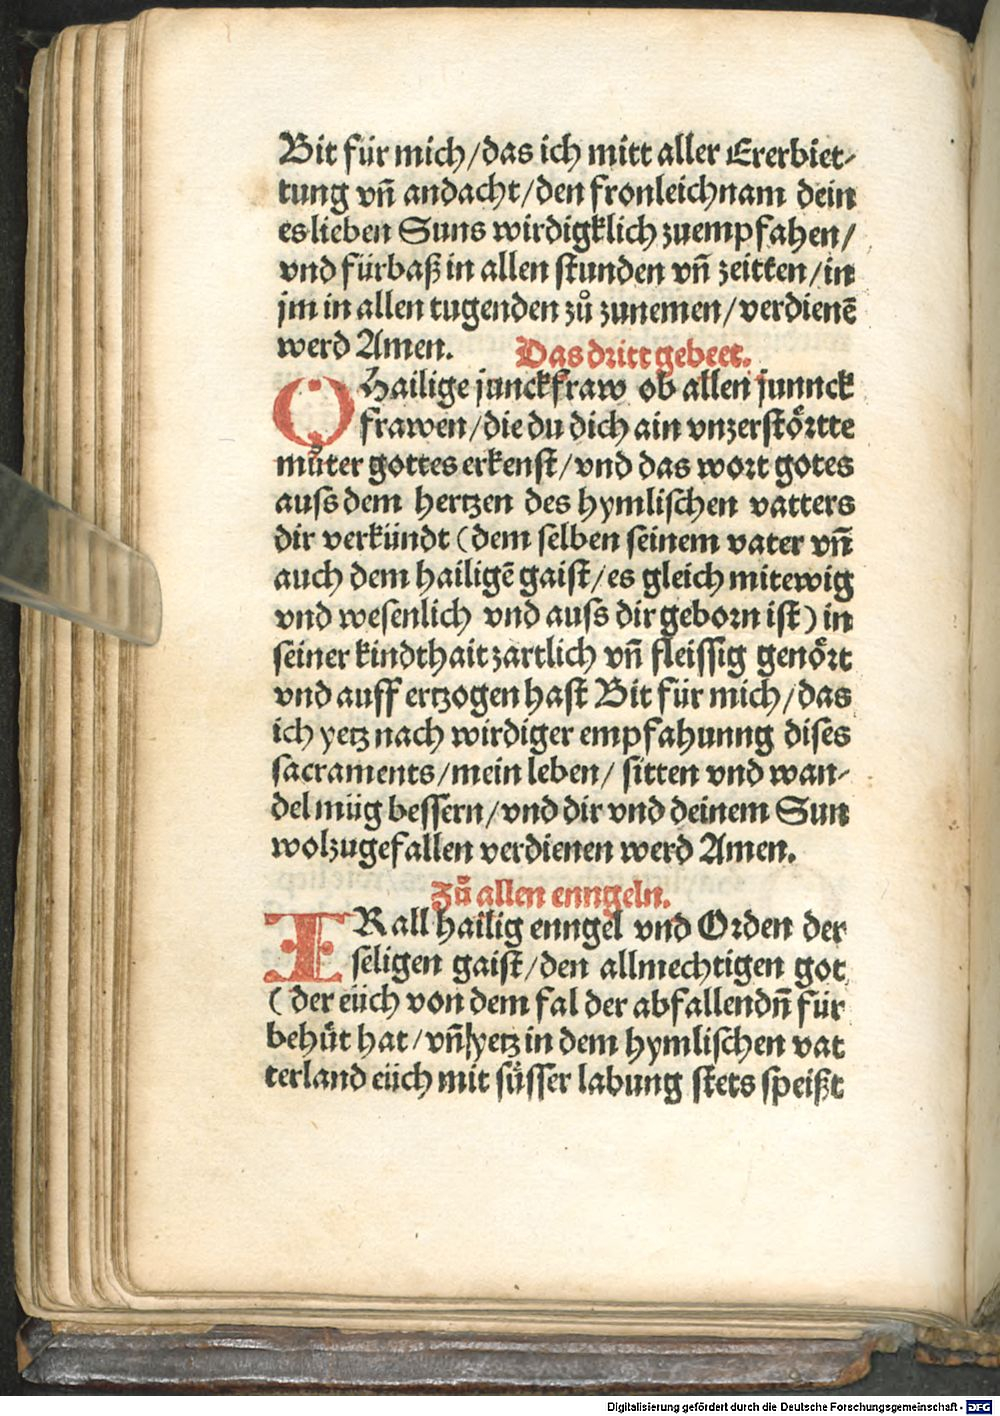 Bit für mich/das ich mitt aller Ererbiet-
tung vn̄ andacht/den fronleichnam dein
es lieben Suns wirdigklich zuempfahen/
vnd fürbaß in allen stunden vn̄ zeitten/in
jm in allen tugenden zů zunemen/verdienē
werd Amen.
Das dritt gebeet.
O Hailige junckfraw ob allen junnck
frawen/die du dich ain vnzerstörtte
můter gottes erkenst/vnd das wort gotes
auss dem hertzen des hymlischen vatters
dir verkündt (dem selben seinem vater vn̄
auch dem hailigē gaist/es gleich mitewig
vnd wesenlich vnd auss dir geborn ist) in
seiner kindthait zartlich vn̄ fleissig genört
vnd auff ertzogen hast Bit für mich/das
ich yetz nach wirdiger empfahunng dises
sacraments/mein leben/ sitten vnd wan-
del müg bessern/vnd dir vnd deinem Sun
wolzugefallen verdienen werd Amen.
Zů allen enngeln.
IR all hailig enngel vnd Orden der
seligen gaist/den allmechtigen got
( der eüch von dem fal der abfallendn̄ für
behüt hat/vn̄ yetz in dem hymlischen vat
terland eüch mit süsser labung stets speißt
Digitalisierung gefördert durch die Deutsche Forschungsgemeinschaft - DFG